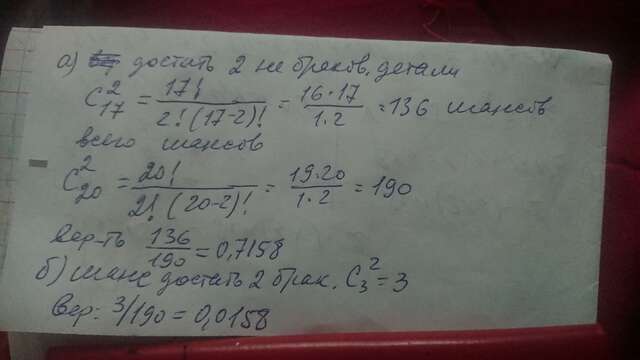 а) достать 2 не браков. детали
C₁₇² = 17! / 2!(17-2)! = 16·17 / 1·2 = 136 шансов
всего шансов
C₂₀² = 20! / 2!(20-2)! = 19·20 / 1·2 = 190
Вер-ть 136/190 = 0,7158
б) шанс достать 2 брак. C₃² = 3
Вер: 3/190 = 0,0158